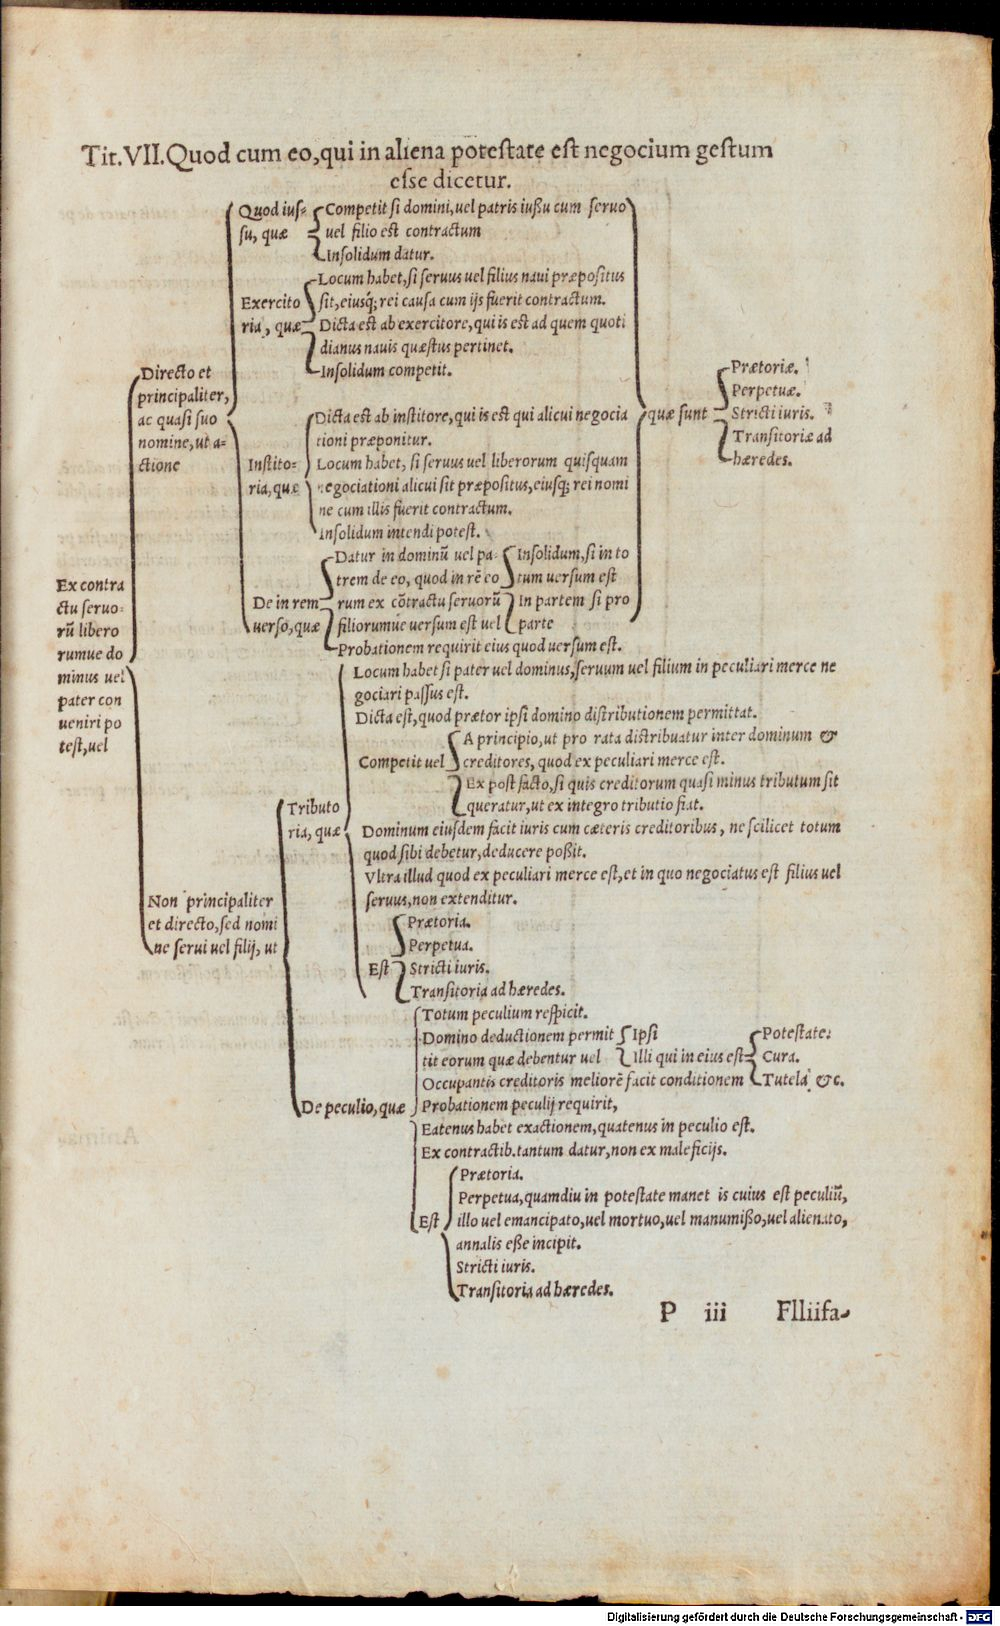 Tit. VII. Quod cum eo, qui in aliena potestate est negocium gestum
esse dicetur.
Ex contra
ctu seruo-
rũ libero
rumue do
minus uel
pater con
ueniri po
test, uel
Directo et
principaliter,
ac quasi suo
nomine, ut a-
ctione
Quod ius-
su, quæ
Competit si domini, uel patris iussu cum seruo
uel filio est contractum
Insolidum datur.
Exercito
ria, quæ
Locum habet, si seruus uel filius naui præpositus
sit, eiusq; rei causa cum ijs fuerit contractum.
Dicta est ab exercitore, qui is est ad quem quoti
dianus nauis quæstus pertinet.
Insolidum competit.
Instito-
ria, quæ
Dicta est ab institore, qui is est qui alicui negocia
tioni præponitur.
Locum habet, si seruus uel liberorum quisquam
negociationi alicui sit præpositus, eiusq; rei nomi
ne cum illis fuerit contractum.
Insolidum intendi potest.
De in rem
uerso, quæ
Datur in dominũ uel pa-
trem de eo, quod in rẽ eo
rum ex cõtractu seruorũ
filiorumue uersum est uel
Insolidum, si in to
tum uersum est
In partem si pro
parte
Probationem requirit eius quod uersum est.
quæ sunt
Prætoriæ.
Perpetuæ.
Stricti iuris.
Transitoriæ ad
hæredes.
Non principaliter
et directo, sed nomi
ne serui uel filij, ut
Tributo
ria, quæ
Locum habet si pater uel dominus, seruum uel filium in peculiari merce ne
gociari passus est.
Dicta est, quod prætor ipsi domino distributionem permittat.
Competit uel
A principio, ut pro rata distribuatur inter dominum &
creditores, quod ex peculiari merce est.
Ex post facto, si quis creditorum quasi minus tributum sit
queratur, ut ex integro tributio fiat.
Dominum eiusdem facit iuris cum cæteris creditoribus, ne scilicet totum
quod sibi debetur, deducere possit.
Vltra illud quod ex peculiari merce est, et in quo negociatus est filius uel
seruus, non extenditur.
Est
Prætoria.
Perpetua.
Stricti iuris.
Transitoria ad hæredes.
De peculio, quæ
Totum peculium respicit.
Domino deductionem permit
tit eorum quæ debentur uel
Ipsi
Illi qui in eius est
Potestate.
Cura.
Tutela &c.
Occupantis creditoris meliorẽ facit conditionem
Probationem peculij requirit,
Eatenus habet exactionem, quatenus in peculio est.
Ex contractib. tantum datur, non ex maleficijs.
Est
Prætoria.
Perpetua, quamdiu in potestate manet is cuius est peculiũ,
illo uel emancipato, uel mortuo, uel manumisso, uel alienato,
annalis esse incipit.
Stricti iuris.
Transitoria ad hæredes.
P iii Flliifa-
Digitalisierung gefördert durch die Deutsche Forschungsgemeinschaft - DFG